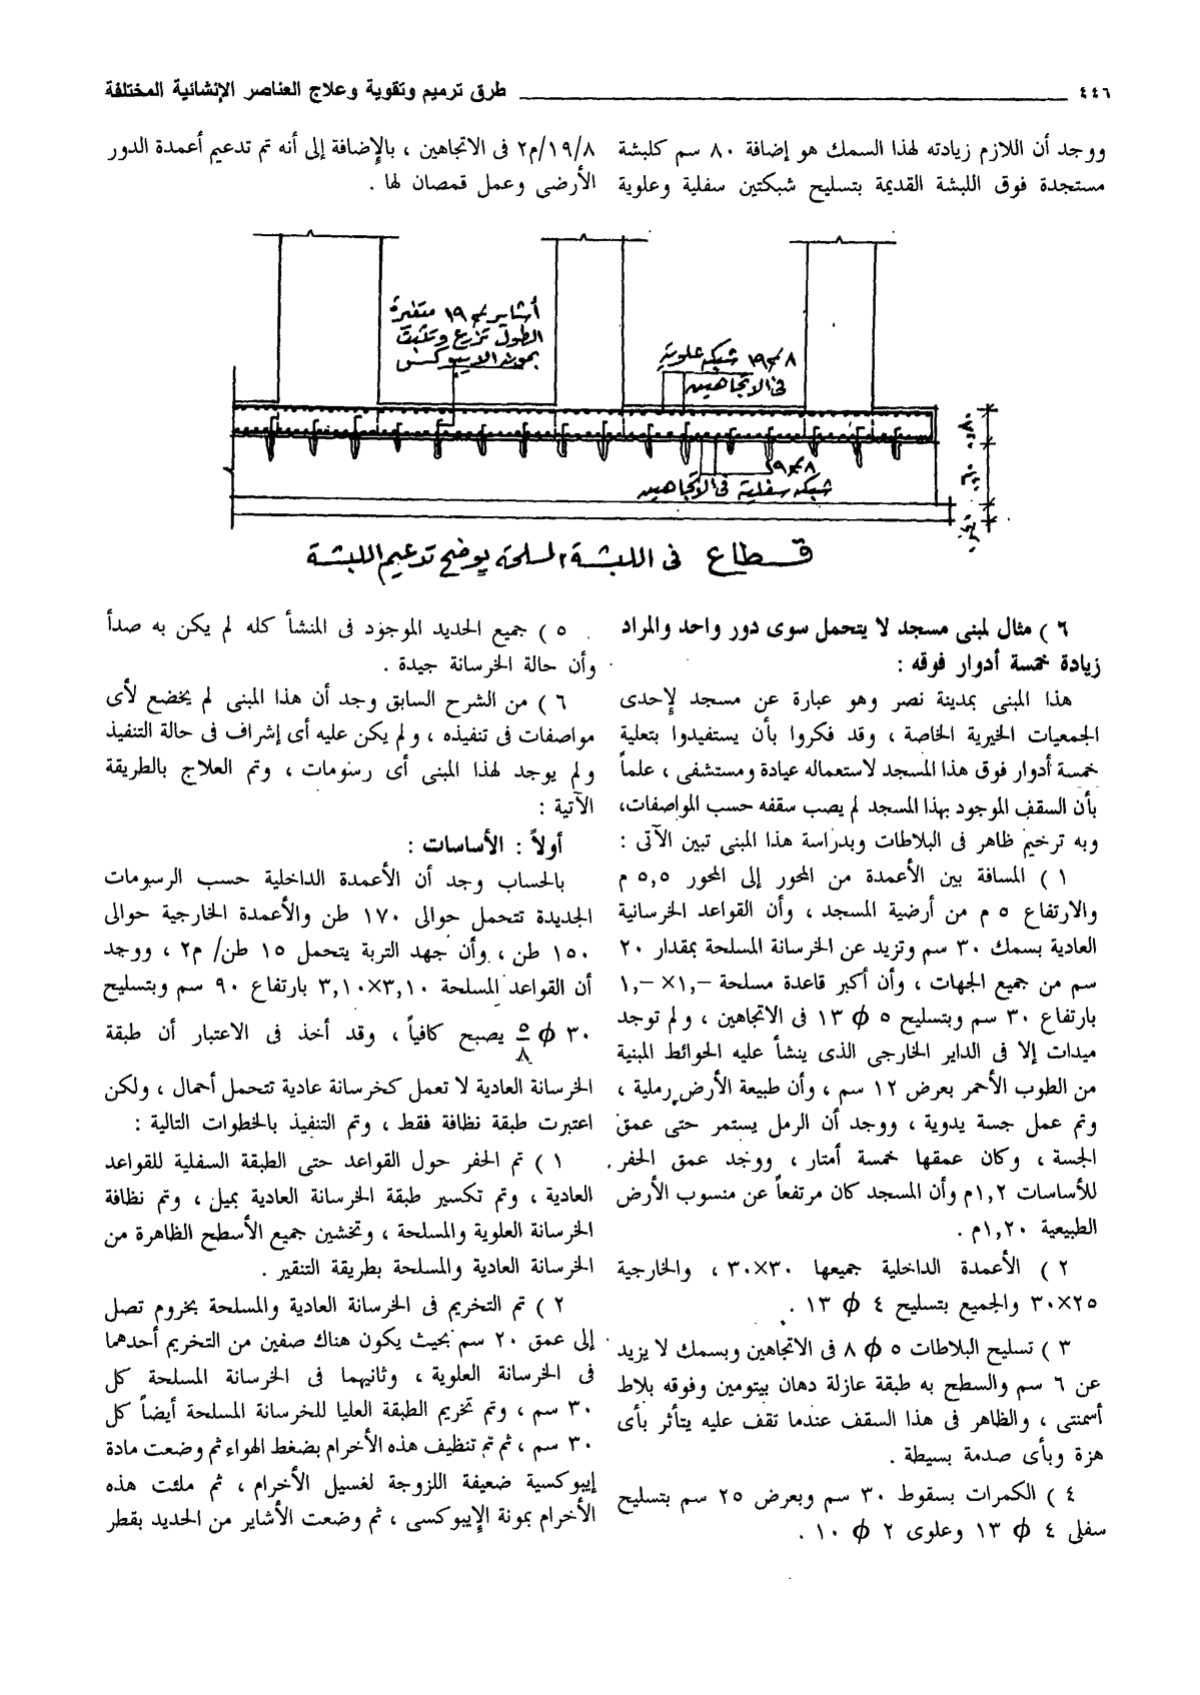 ٤٤٦ طرق ترميم وتقوية وعلاج العناصر الإنشائية المختلفة
ووجد أن اللازم زيادته لهذا السمك هو إضافة ٨٠ سم كلبشة
مستجدة فوق اللبشة القديمة بتسليح شبكتين سفلية وعلوية
١٩/٨/م٢ فى الاتجاهين ، بالإضافة إلى أنه تم تدعيم أعمدة الدور
الأرضى وعمل قمصان لها .
أشاير ١٩ متغيرة
الطول تزرع وتثبت
بمونة الايبوكسى
٨ ١٩ شبكة علوية
فى الاتجاهين
٨ ١٩
شبكة سفلية فى الاتجاهين
قطاع فى اللبشة المسلحة يوضح تدعيم اللبشة
٦ ) مثال لمبنى مسجد لا يتحمل سوى دور واحد والمراد
زيادة خمسة أدوار فوقه :
هذا المبنى بمدينة نصر وهو عبارة عن مسجد لإحدى
الجمعيات الخيرية الخاصة ، وقد فكروا بأن يستفيدوا بتعلية
خمسة أدوار فوق هذا المسجد لاستعماله عيادة ومستشفى ، علماً
بأن السقف الموجود بهذا المسجد لم يصب سقفه حسب المواصفات،
وبه ترخيم ظاهر فى البلاطات وبدراسة هذا المبنى تبين الآتى :
١ ) المسافة بين الأعمدة من المحور إلى المحور ٥,٥ م
والارتفاع ٥ م من أرضية المسجد ، وأن القواعد الخرسانية
العادية بسمك ٣٠ سم وتزيد عن الخرسانة المسلحة بمقدار ٢٠
سم من جميع الجهات ، وأن أكبر قاعدة مسلحة –,١× –,١
بارتفاع ٣٠ سم وبتسليح ٥ ϕ ١٣ فى الاتجاهين ، ولم توجد
ميدات إلا فى الداير الخارجى الذى ينشأ عليه الحوائط المبنية
من الطوب الأحمر بعرض ١٢ سم ، وأن طبيعة الأرض رملية ،
وتم عمل جسة يدوية ، ووجد أن الرمل يستمر حتى عمق
الجسة ، وكان عمقها خمسة أمتار ، ووجد عمق الحفر
للأساسات ١,٢م وأن المسجد كان مرتفعاً عن منسوب الأرض
الطبيعية ١,٢٠م .
٢ ) الأعمدة الداخلية جميعها ٣٠×٣٠ ، والخارجية
٢٥×٣٠ والجميع بتسليح ٤ ϕ ١٣ .
٣ ) تسليح البلاطات ٥ ϕ ٨ فى الاتجاهين وبسمك لا يزيد
عن ٦ سم والسطح به طبقة عازلة دهان بيتومين وفوقه بلاط
أسمنتى ، والظاهر فى هذا السقف عندما تقف عليه يتأثر بأى
هزة وبأى صدمة بسيطة .
٤ ) الكمرات بسقوط ٣٠ سم وبعرض ٢٥ سم بتسليح
سفلى ٤ ϕ ١٣ وعلوى ٢ ϕ ١٠ .
٥ ) جميع الحديد الموجود فى المنشأ كله لم يكن به صدأ
وأن حالة الخرسانة جيدة .
٦ ) من الشرح السابق وجد أن هذا المبنى لم يخضع لأى
مواصفات فى تنفيذه ، ولم يكن عليه أى إشراف فى حالة التنفيذ
ولم يوجد لهذا المبنى أى رسنومات ، وتم العلاج بالطريقة
الآتية :
أولاً : الأساسات :
بالحساب وجد أن الأعمدة الداخلية حسب الرسومات
الجديدة تتحمل حوالى ١٧٠ طن والأعمدة الخارجية حوالى
١٥٠ طن ، وأن جهد التربة يتحمل ١٥ طن/ م٢ ، ووجد
أن القواعد المسلحة ٣,١٠×٣,١٠ بارتفاع ٩٠ سم وبتسليح
٣٠ ϕ ٥/٨ يصبح كافياً ، وقد أخذ فى الاعتبار أن طبقة
الخرسانة العادية لا تعمل كخرسانة عادية تتحمل أحمال ، ولكن
اعتبرت طبقة نظافة فقط ، وتم التنفيذ بالخطوات التالية :
١ ) تم الحفر حول القواعد حتى الطبقة السفلية للقواعد
العادية ، وتم تكسير طبقة الخرسانة العادية بميل ، وتم نظافة
الخرسانة العلوية والمسلحة ، وتخشين جميع الأسطح الظاهرة من
الخرسانة العادية والمسلحة بطريقة التنقير .
٢ ) تم التخريم فى الخرسانة العادية والمسلحة بخروم تصل
إلى عمق ٢٠ سم بحيث يكون هناك صفين من التخريم أحدهما
فى الخرسانة العلوية ، وثانيهما فى الخرسانة المسلحة كل
٣٠ سم ، وتم تخريم الطبقة العليا للخرسانة المسلحة أيضاً كل
٣٠ سم ، ثم تم تنظيف هذه الأخرام بضغط الهواء ثم وضعت مادة
إيبوكسية ضعيفة اللزوجة لغسيل الأخرام ، ثم ملئت هذه
الأخرام بمونة الإيبوكسى ، ثم وضعت الأشاير من الحديد بقطر